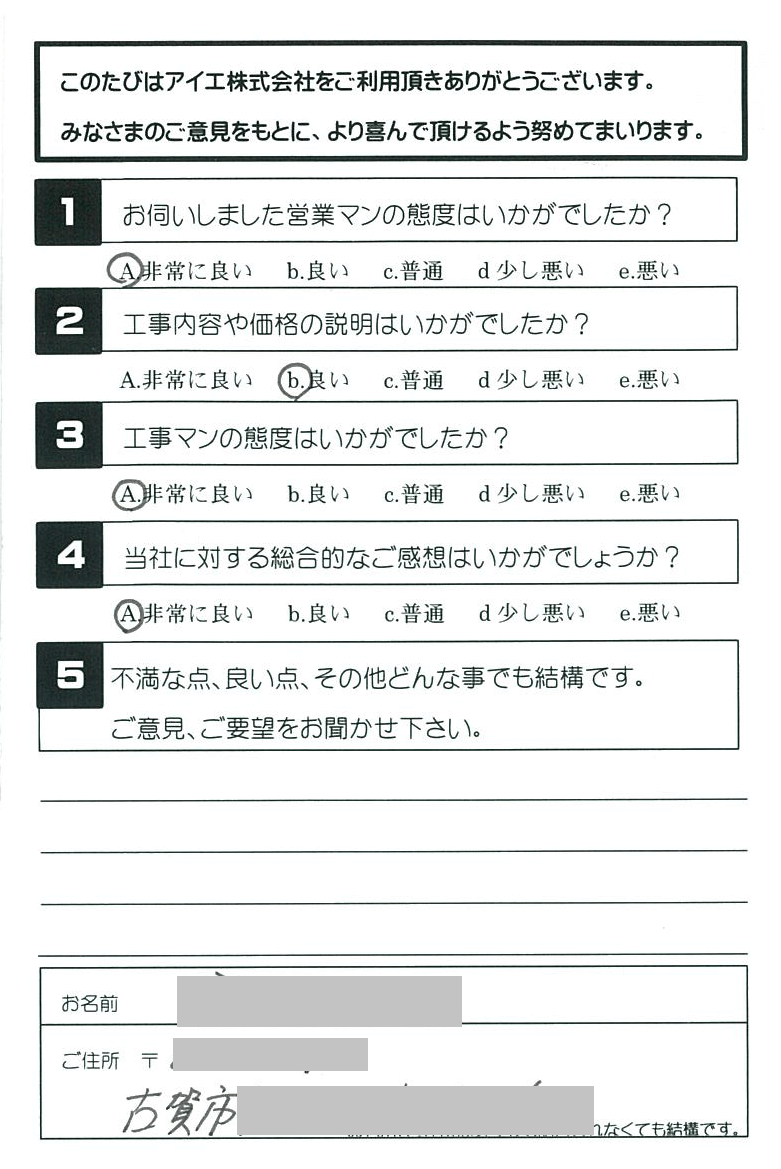 このたびはアイエ株式会社をご利用頂きありがとうございます。
みなさまのご意見をもとに、より喜んで頂けるよう努めてまいります。
1 お伺いしました営業マンの態度はいかがでしたか？
A.非常に良い b.良い c.普通 d 少し悪い e.悪い
2 工事内容や価格の説明はいかがでしたか？
A.非常に良い b.良い c.普通 d 少し悪い e.悪い
3 工事マンの態度はいかがでしたか？
A.非常に良い b.良い c.普通 d 少し悪い e.悪い
4 当社に対する総合的なご感想はいかがでしょうか？
A.非常に良い b.良い c.普通 d 少し悪い e.悪い
5 不満な点、良い点、その他どんな事でも結構です。
ご意見、ご要望をお聞かせ下さい。
お名前
ご住所 〒
古賀市
れなくても結構です。